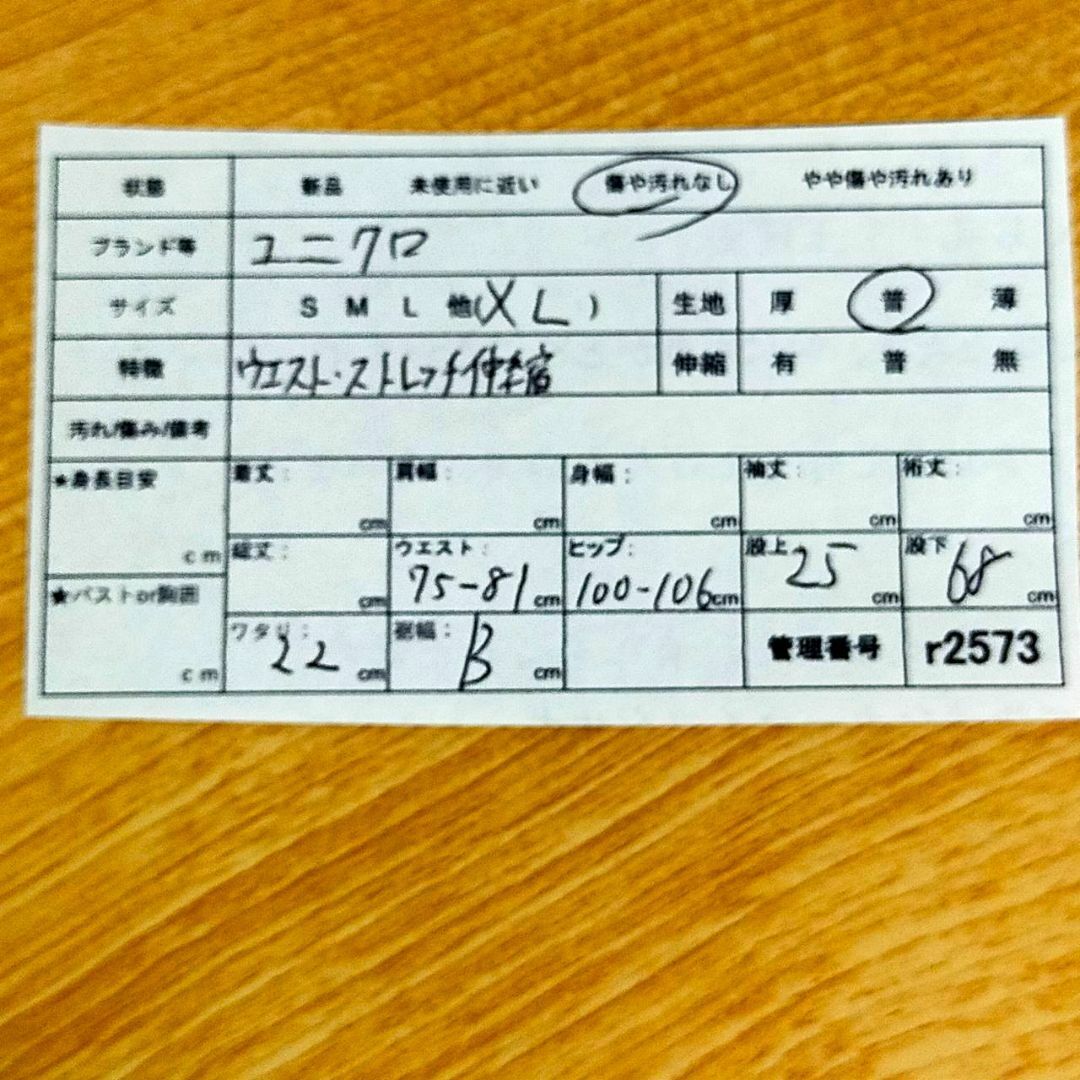 状態 新品 未使用に近い 傷や汚れなし やや傷や汚れあり
ブランド等 ユニクロ
サイズ S M L 他(XL) 生地 厚 普 薄
特徴 ウエスト・ストレッチ伸縮 伸縮 有 普 無
汚れ/傷み/備考
★身長目安 cm 着丈: cm 肩幅: cm 身幅: cm 袖丈: cm 裄丈: cm
総丈: cm ウエスト: 75-81 cm ヒップ: 100-106cm 股上 25 cm 股下 68 cm
★バストor胸囲 cm ワタリ: 22 cm 裾幅: cm 管理番号 r2573